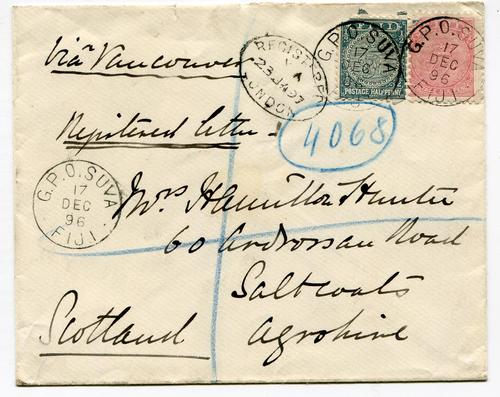 Via Vancouver
REGISTERED
A
23 JA 97
LONDON
G.P.O. SUVA
17
DEC
96
FIJI
POSTAGE HALF PENNY
G.P.O. SUVA
17
DEC
96
FIJI
Registered letter
4068
G.P.O. SUVA
17
DEC
96
FIJI
Mrs Hamilton Hunter
60 Ardrossan Road
Saltcoats
Scotland
Ayrshire